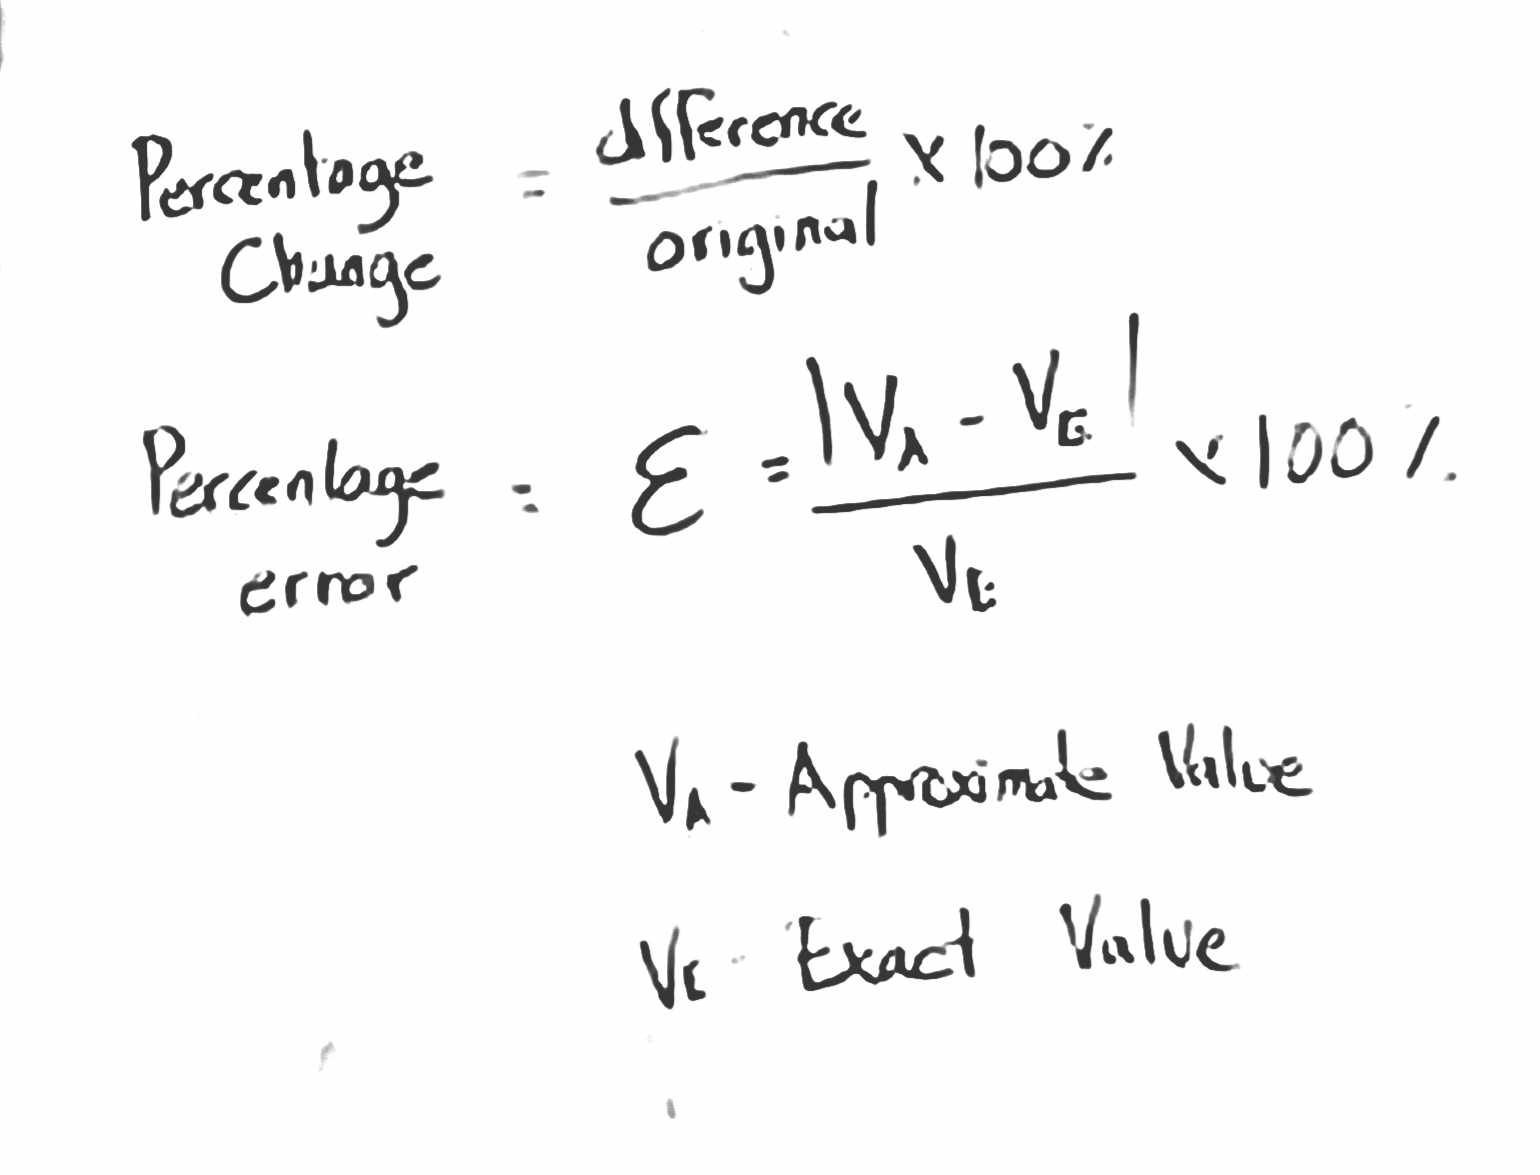 Percentage Change = difference / original × 100%
Percentage error = ε = |V_A - V_E| / V_E × 100%
V_A - Approximate Value
V_E - Exact Value